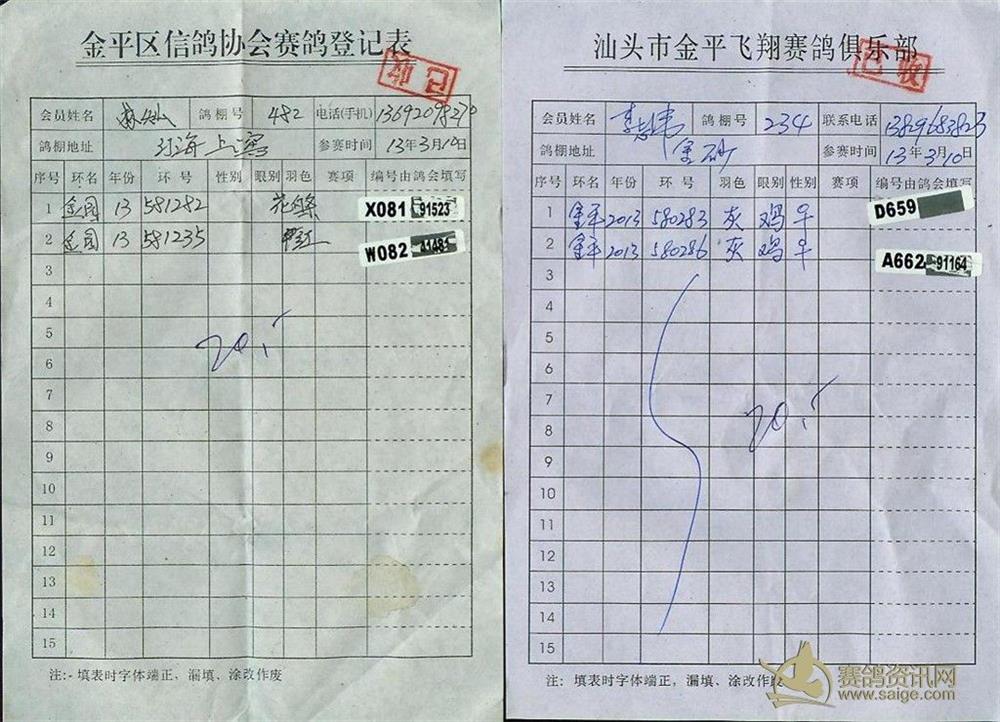 金平区信鸽协会赛鸽登记表
会员姓名 鸽棚号 482 电话(手机)
鸽棚地址 参赛时间 13年3月10日
序号 环名 年份 环 号 性别 眼别 羽色 赛项 编号由鸽会填写
1 13 581282 X081 91523
2 13 581235 W082 41481
3
4
5
6
7
8
9
10
11
12
13
14
15
20.5
注:填表时字体端正,漏填、涂改作废
汕头市金平飞翔赛鸽俱乐部
已收
会员姓名 鸽棚号 234 联系电话 13829683823
鸽棚地址 金砂 参赛时间 13年3月10日
序号 环名 年份 环 号 羽色 眼别 性别 赛项 编号由鸽会填写
1 金平 2013 580283 灰 鸡 D659
2 金平 2013 580286 灰 鸡 A662 91164
3
4
5
6
7
8
9
10
11
12
13
14
15
20.5
注:填表时字体端正,漏填、涂改作废
赛鸽资讯网
www.saige.com